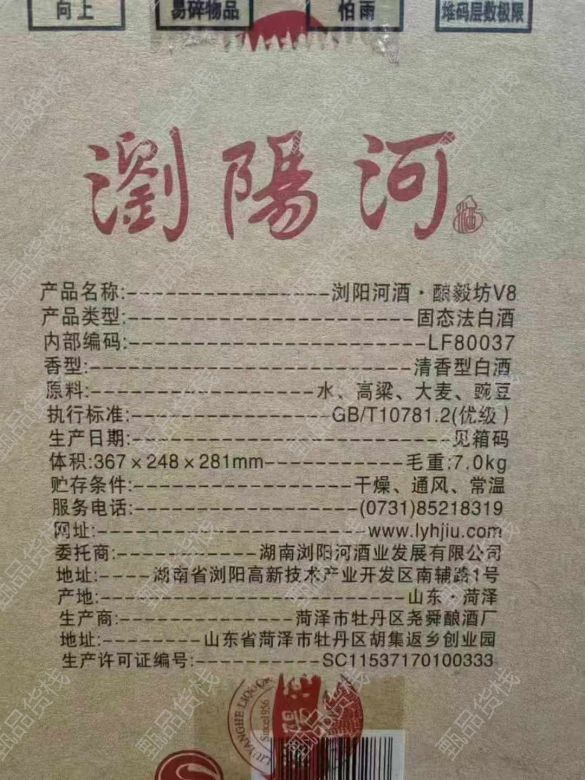 向上 易碎物品 怕雨 堆码层数极限
瀏陽河
产品名称:浏阳河酒·酿毅坊V8
产品类型:固态法白酒
内部编码:LF80037
香型:清香型白酒
原料:水、高粱、大麦、豌豆
执行标准:GB/T10781.2(优级)
生产日期:见箱码
体积:367×248×281mm 毛重:7.0kg
贮存条件:干燥、通风、常温
服务电话:(0731)85218319
网址:www.lyhjiu.com
委托商:湖南浏阳河酒业发展有限公司
地址:湖南省浏阳高新技术产业开发区南辅路1号
产地:山东·菏泽
生产商:菏泽市牡丹区尧舜酿酒厂
地址:山东省菏泽市牡丹区胡集返乡创业园
生产许可证编号:SC11537170100333
LIUYANGHE LIQUOR
Since1956
甄品货栈